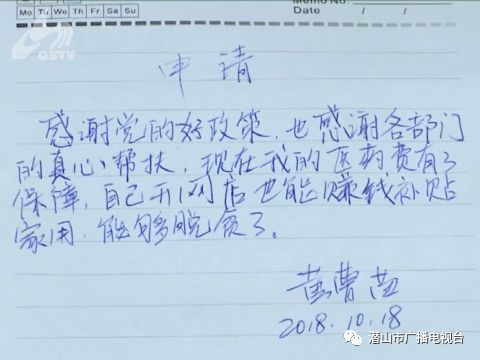 QSTV
Memo No.
Mo Tu We Th Fr Sa Su
Date / /
申请
感谢党的好政策,也感谢各部门
的真心帮扶,现在我的医药费有了
保障,自己开网店也能赚钱补贴
家用,能够脱贫了。
黄曹苗
2018.10.18
潜山市广播电视台